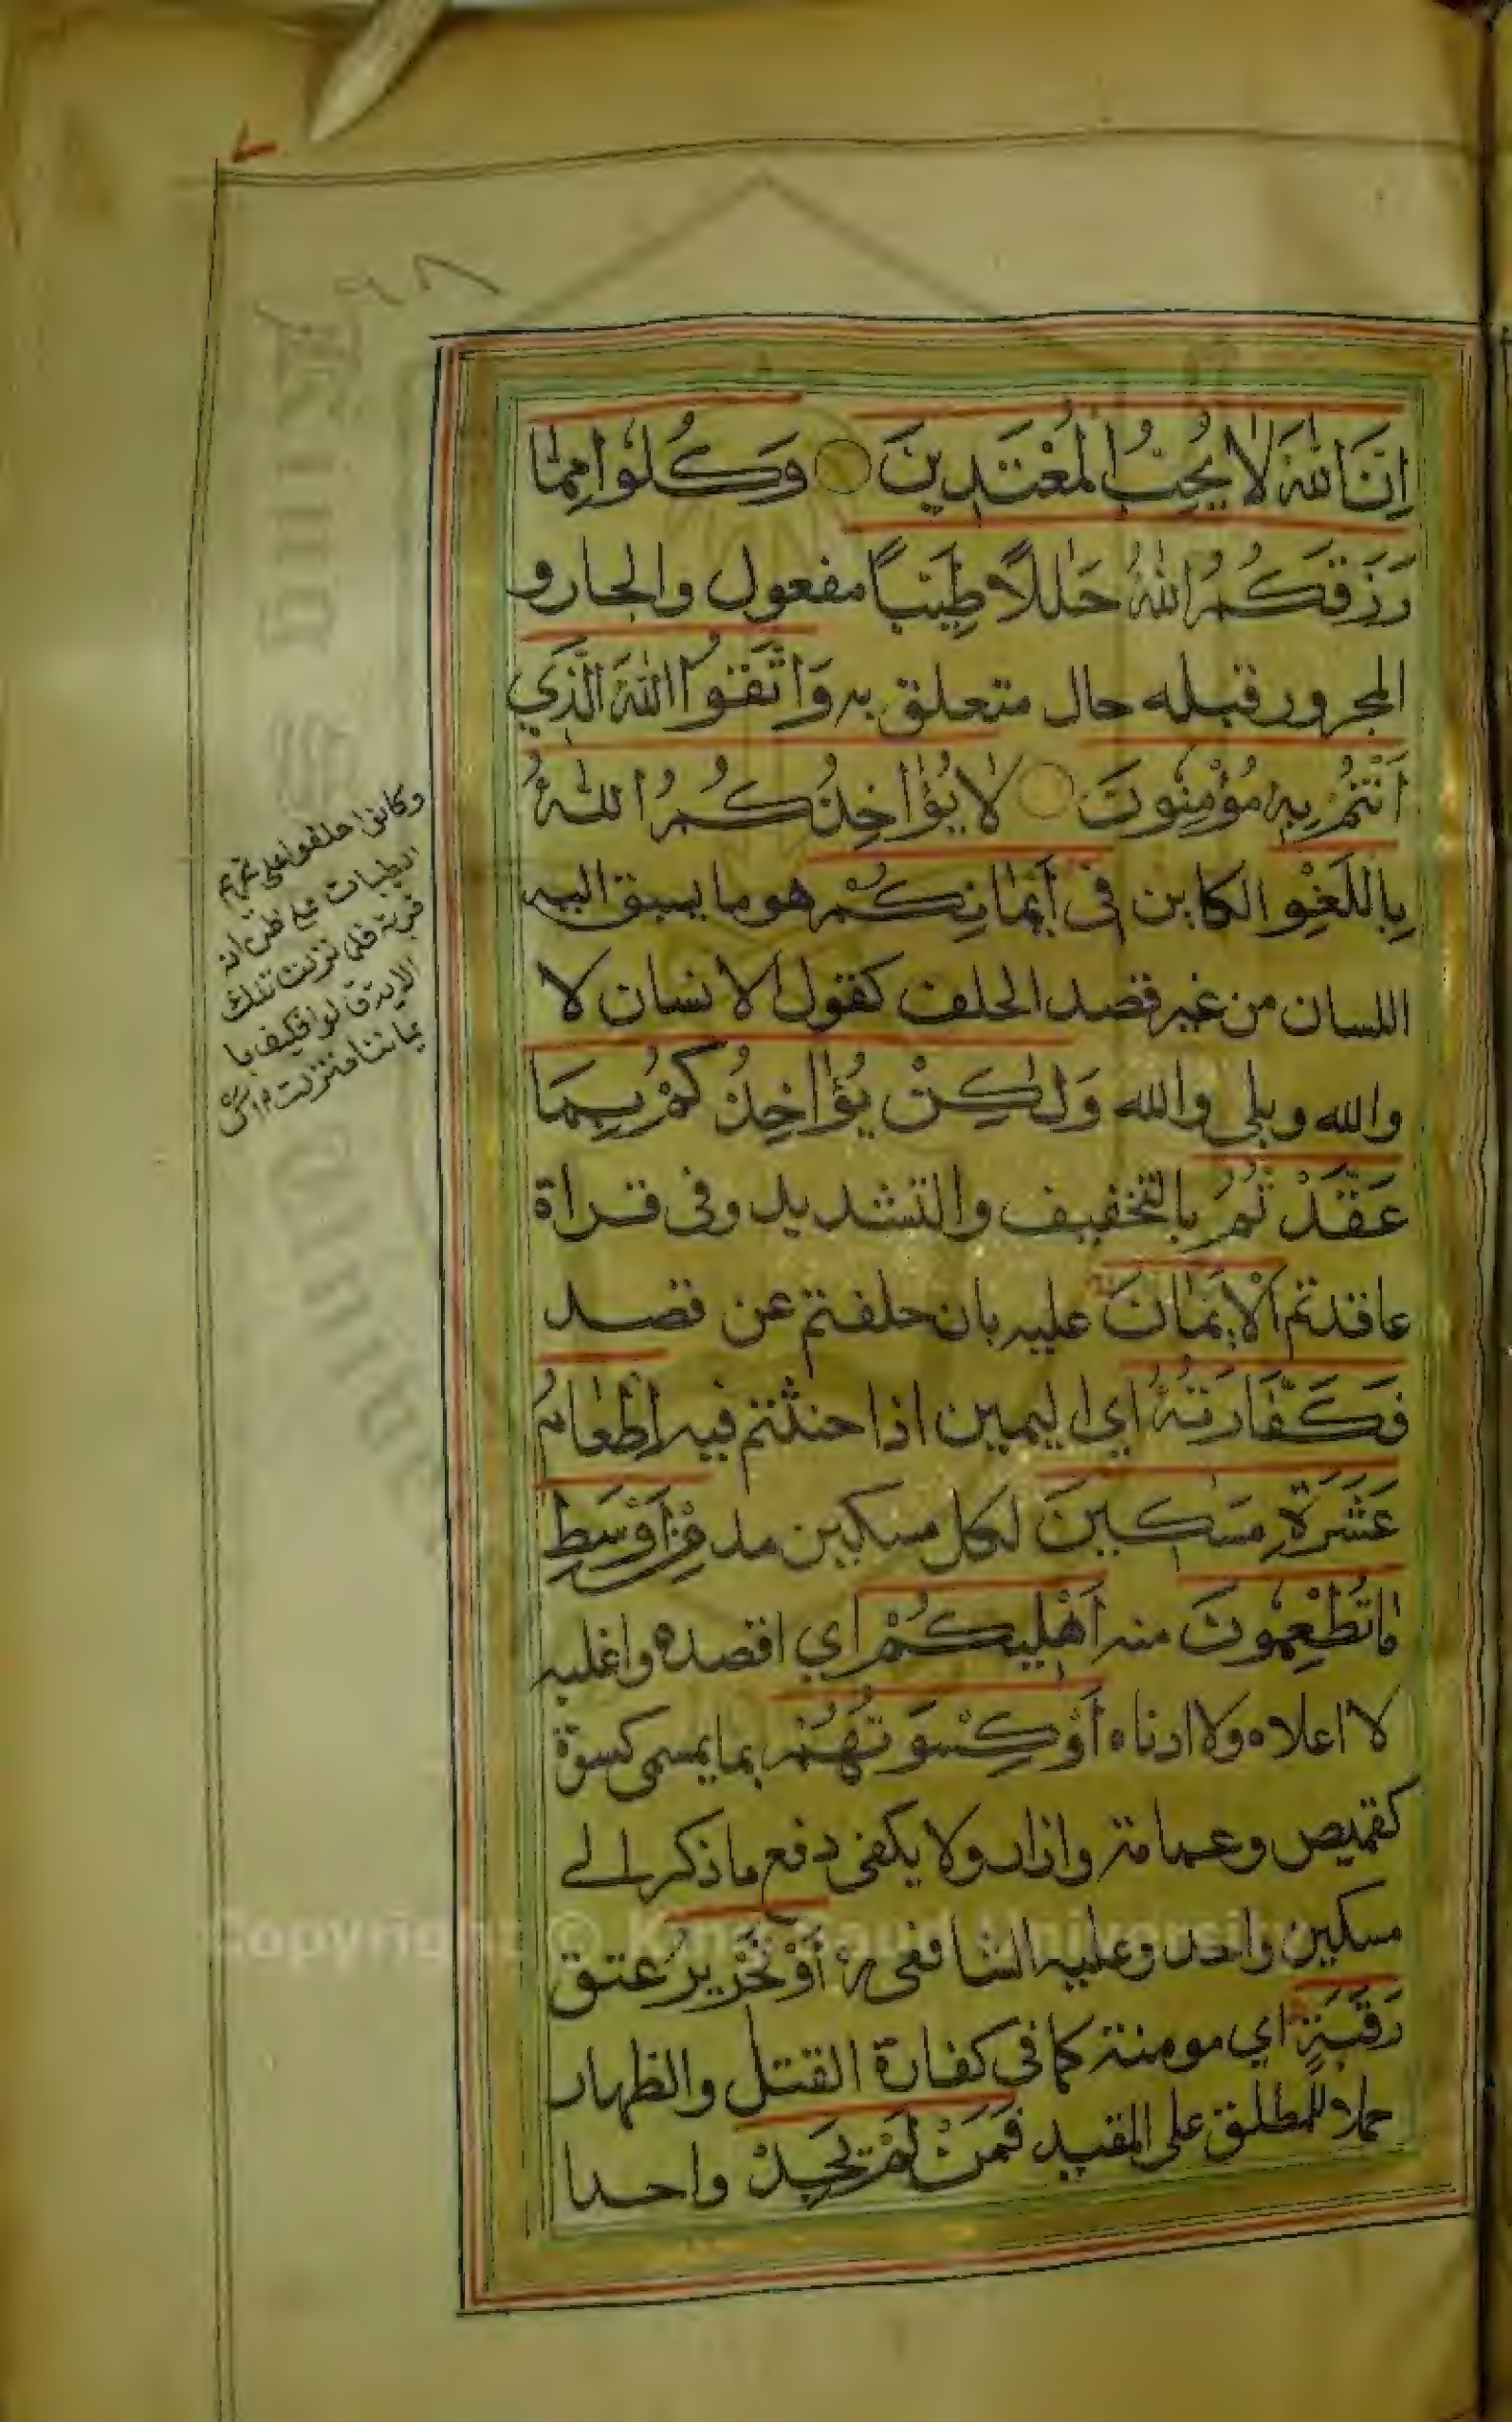 ٩٨
اِنَّ اللّٰهَ لَا يُحِبُّ الْمُعْتَدِينَ وَكُلُوْا مِمَّا
رَزَقَكُمُ اللّٰهُ حَلٰلًا طَيِّبًا مفعول والجار و
المجرور قبله حال متعلق به وَاتَّقُوا اللّٰهَ الَّذِي
اَنْتُمْ بِهٖ مُؤْمِنُونَ لَا يُؤَاخِذُكُمُ اللّٰهُ
بِاللَّغْوِ الكاين فِي اَيْمَانِكُمْ هو ما يسبق اليه
اللسان من غير قصد الحلف كقول الانسان لا
والله وبلى والله وَلٰكِنْ يُؤَاخِذُكُمْ بِمَا
عَقَّدْتُمُ بالتخفيف والتشديد وفي قراة
عاقدتم اَلْاَيْمَانَ عليه بان حلفتم عن قصد
فَكَفَّارَتُهُ اي اليمين اذا حنثتم فيه اِطْعَامُ
عَشَرَةِ مَسٰكِينَ لكل مسكين مد مِنْ اَوْسَطِ
مَا تُطْعِمُونَ منه اَهْلِيكُمْ اي اقصده واغلبه
لا اعلاه ولا ادناه اَوْ كِسْوَتُهُمْ بما يسمى كسوة
كقميص وعمامة وازار ولا يكفي دفع ما ذكر الے
مسكين واحد وعليه الشافعي رح اَوْ تَحْرِيرُ عتق
رَقَبَةٍ اي مومنة كما في كفارة القتل والظهار
حملا للمطلق على المقيد فَمَنْ لَمْ يَجِدْ واحدا
وكانوا حلفوا على تحريم
الطيبات على ظن انه
قربة فلما نزلت تلك
الاية قالوا فكيف با
يماننا فنزلت
Copyright © King Saud University